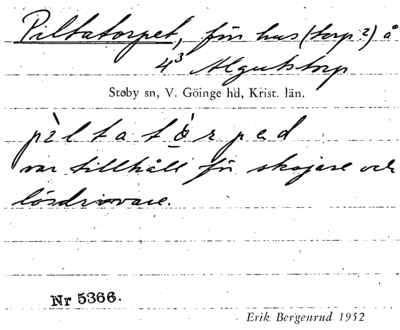 Piltatorpet, för hus (torp?) å
4³ Algutstorp
Støby sn, V. Göinge hd, Krist. län.
pìltatå̀rped
var tillhåll för skojare och
lösdrivare.
Nr 5366.
Erik Bergenrud 1952